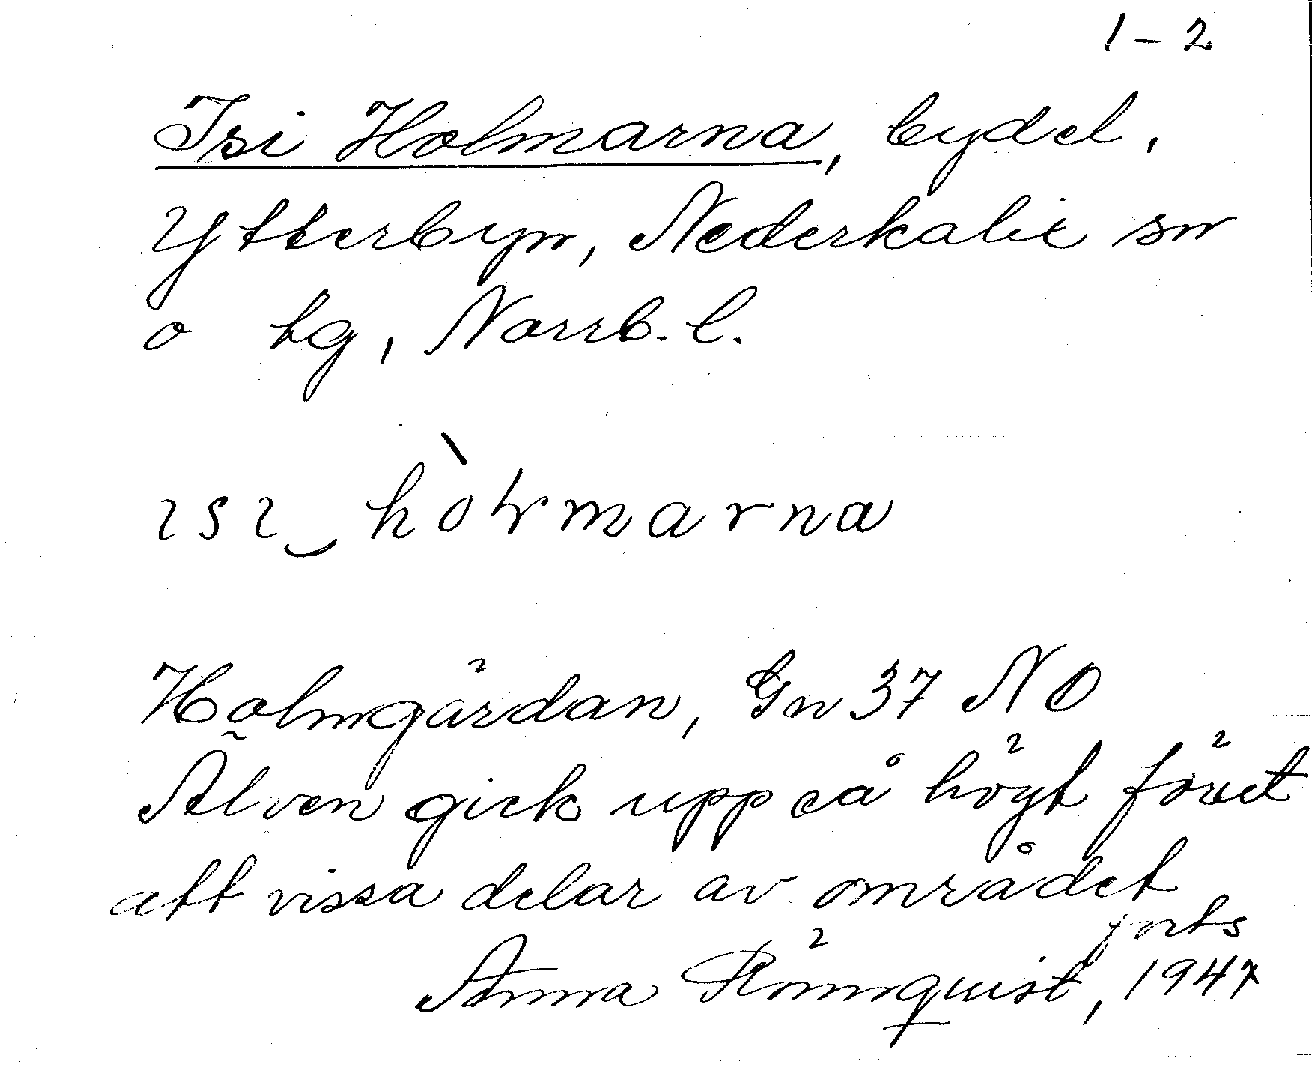 1-2
Isi Holmarna, bydel,
Ytterbyn, Nederkalix sn
o tg, Norrb. l.
ɩsɩ‿hòɽmarna
Holmgärdan, Gn 37 NO
Älven gick upp så högt förut
att vissa delar av området
forts
Anna Rönnquist, 1947